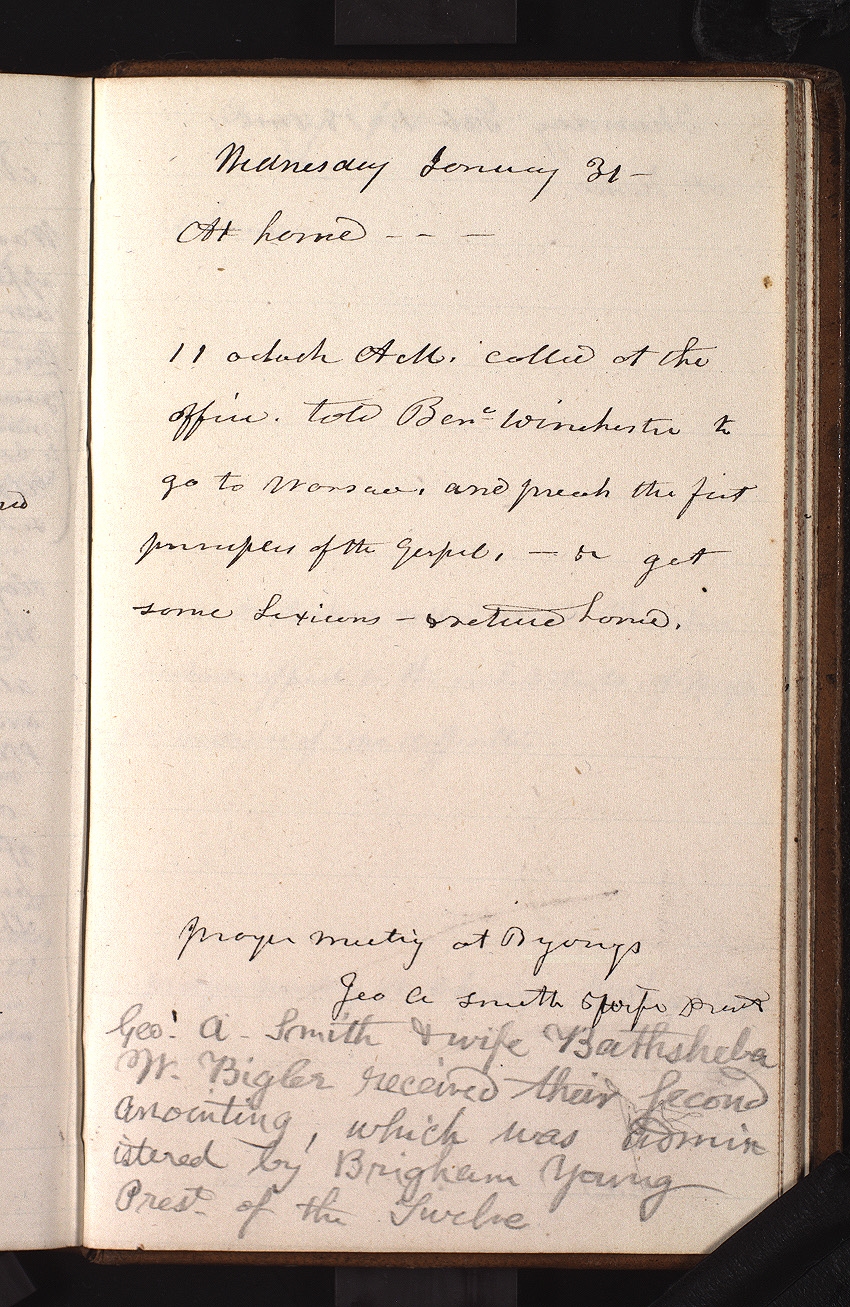 Wednesday January 31 –
At home – – –
11 oclock A M. called at the
office. told Benⁿ Winchester to
go to Warsaw. and preach the first
principles of the Gospel. – or get
some Lexicons – & return home.
prayer meeting at B youngs
Geo A Smith & wife
Geo. A. Smith & wife Bathsheba
W. Bigler received their Second
Anointing, which was admin
istered by Brigham Young
Prest. of the Twelve